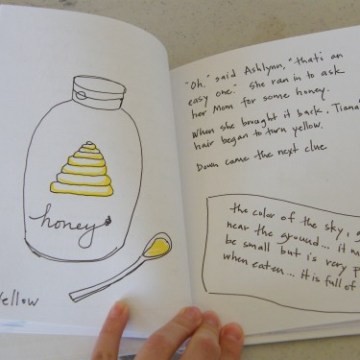 honey
Yellow
"Oh," said Ashlynn, "that's an
easy one." She ran in to ask
her Mom for some honey.
When she brought it back, Tiana
hair began to turn yellow.
Down came the next clue
the color of the sky,
near the ground... it
be small but is very
when eaten... It is full of